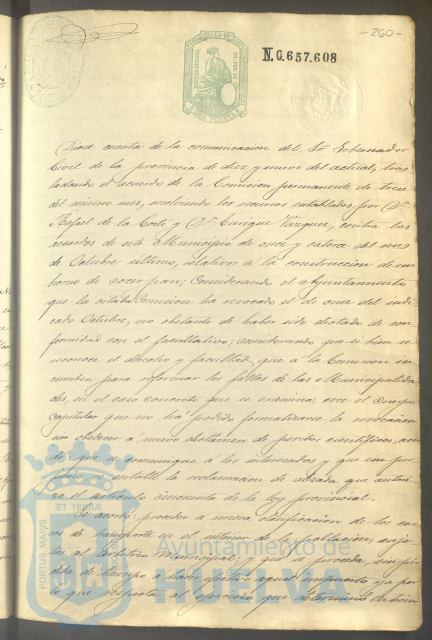 -260-
N.0.657.608
Diose cuenta de la comunicacion del Sr Gobernador
Civil de la provincia de diez y nueve del actual, tras
ladando el acuerdo de la Comision permanente de trece
del mismo mes, resolviendo los recursos entablados por Dn
Rafael de la Corte y Dn Enrique Vazquez, contra los
acuerdos de este Municipio de once y catorce del mes
de Octubre último, relativos a la construccion de un
horno de cocer pan; Considerando el Ayuntamiento
que la citada Comision ha revocado el de once del indi
cado Octubre, no obstante de haber sido dictado de con
formidad con el facultativo; considerando que si bien se
reconoce el derecho y facultad que a la Comision in
cumben para reformar los fallos de las Municipalida
des, en el caso concreto que se examina, cree el cuerpo
capitular que no ha podido formalizarse la revocacion
sin obedecer a nuevo dictamen de peritos cientificos, acor
dó; que se comunique á los interesados y que sin per
juicio se entable la reclamacion de alzada que autori
za el articulo cincuenta de la ley provincial.
Se acordó: proceder a nueva clasificacion de los car
ros de transporte en el interior de la poblacion, suje
tos al arbitrio municipal; y que se proceda, sin per
dida de tiempo a hacer efectivo aquel impuesto ya por
lo que respecta al ejercicio que
PORTUS MARIS
ET TERRAE
Ayuntamiento de
HUELVA